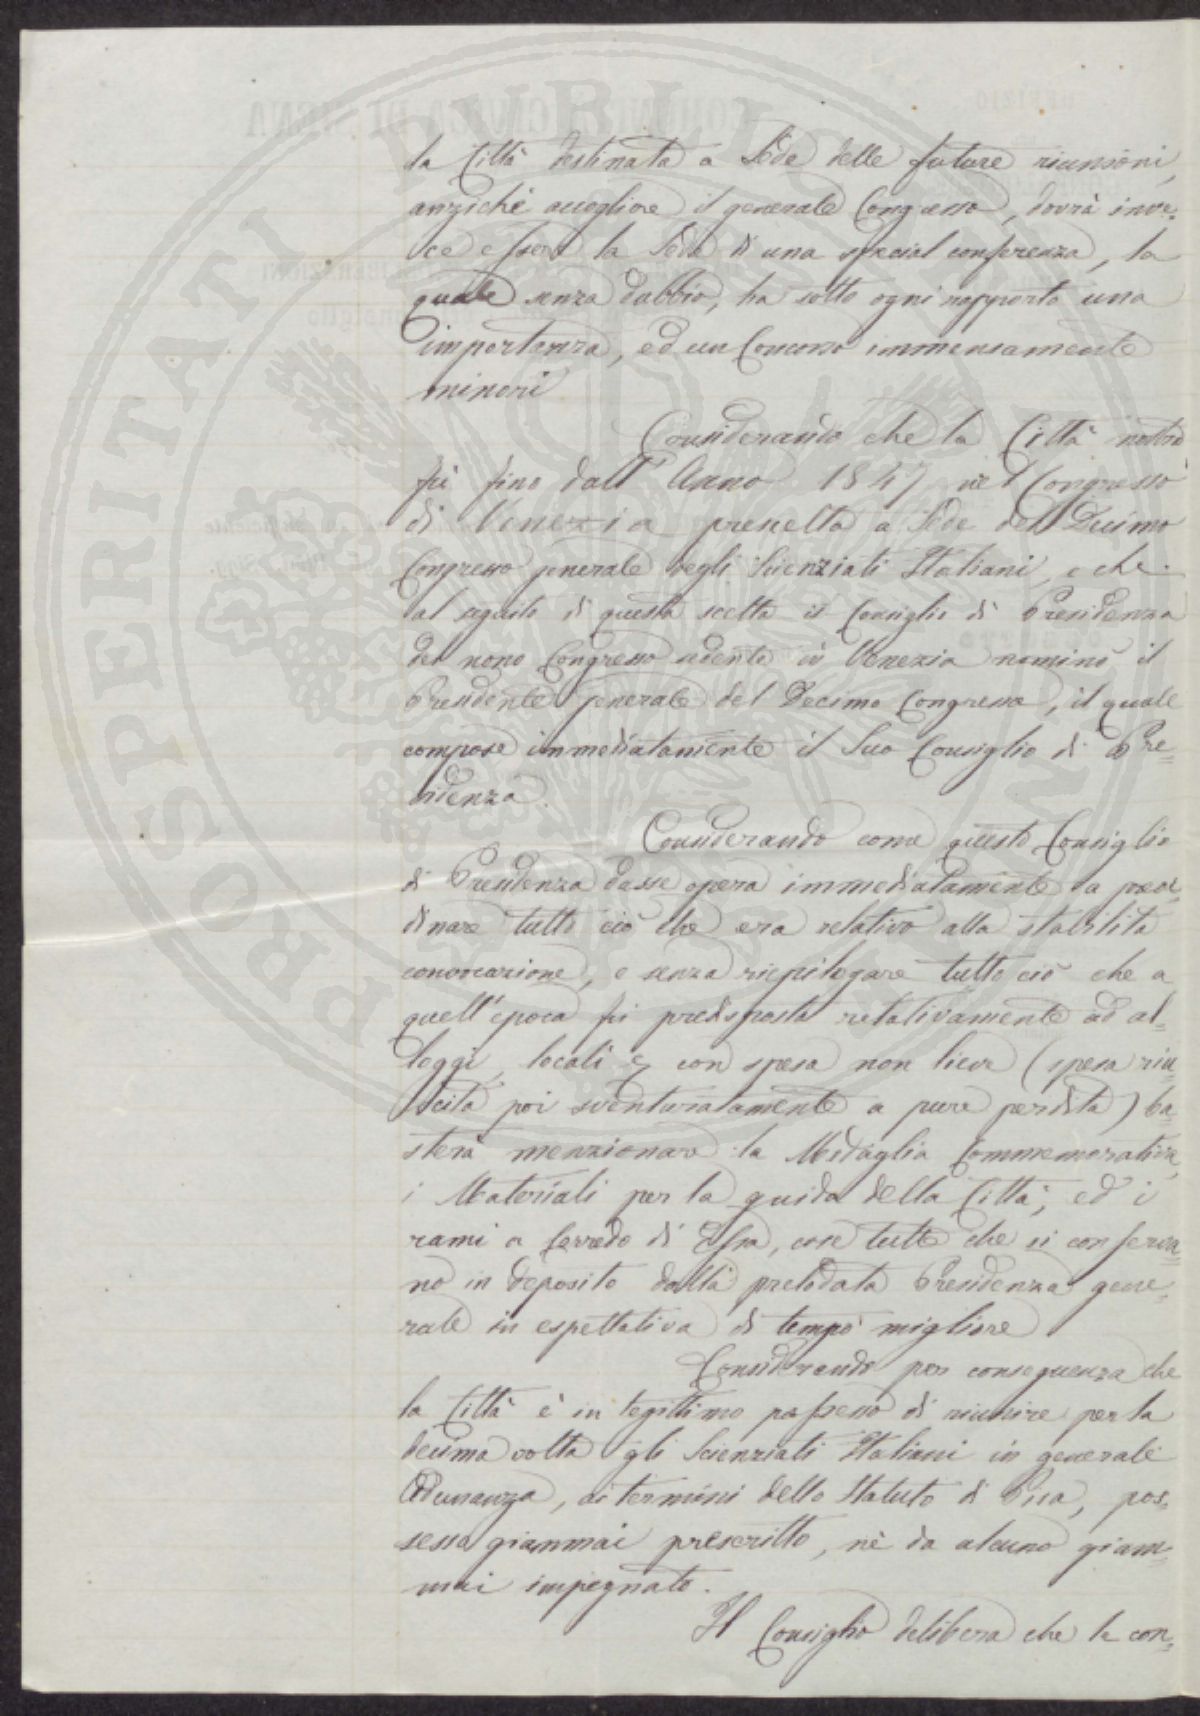 la Città destinata a Sede delle future riunioni,
anzichè accogliere il generale Congresso, dovrà inve=
ce essere la Sede di una special conferenza, la
quale senza dubbio, ha sotto ogni rapporto una
importanza, ed un Concorso immensamente
minori
Considerando che la Città nostra
fù fino dall' Anno 1847 nel Congresso
di Venezia prescelta a Sede del Decimo
Congresso generale degli Scienziati Italiani, e che
al seguito di questa scelta il Consiglio di Presidenza
del nono Congresso sedente in Venezia nominò il
Presidente generale del Decimo Congresso, il quale
compose immediatamente il Suo Consiglio di Pre=
sidenza.
Considerando come questo Consiglio
di Presidenza dasse opera immediatamente a preor=
dinare tutto ciò che era relativo alla stabilita
convocazione, e senza riepilogare tutto ciò che a
quell'epoca fù predisposto relativamente ad al=
loggi, locali & con spesa non lieve (spesa riu=
scita poi sventuratamente a pura perdita) ba=
sterà menzionare la Medaglia Commemorativa,
i Materiali per la guida della Città, ed i
rami a corredo di Essa, cose tutte che si conserva=
no in deposito dalla prelodata Presidenza gene=
rale in espettativa di tempo migliore
Considerando per conseguenza che
la Città è in legittimo possesso di riunire per la
decima volta gli Scienziati Italiani in generale
Adunanza, ai termini dello Statuto di Pisa, pos=
sesso giammai prescritto, nè da alcuno giam=
mai impegnato.
Il Consiglio delibera che la con=
PROSPERITATI PVBLICAE